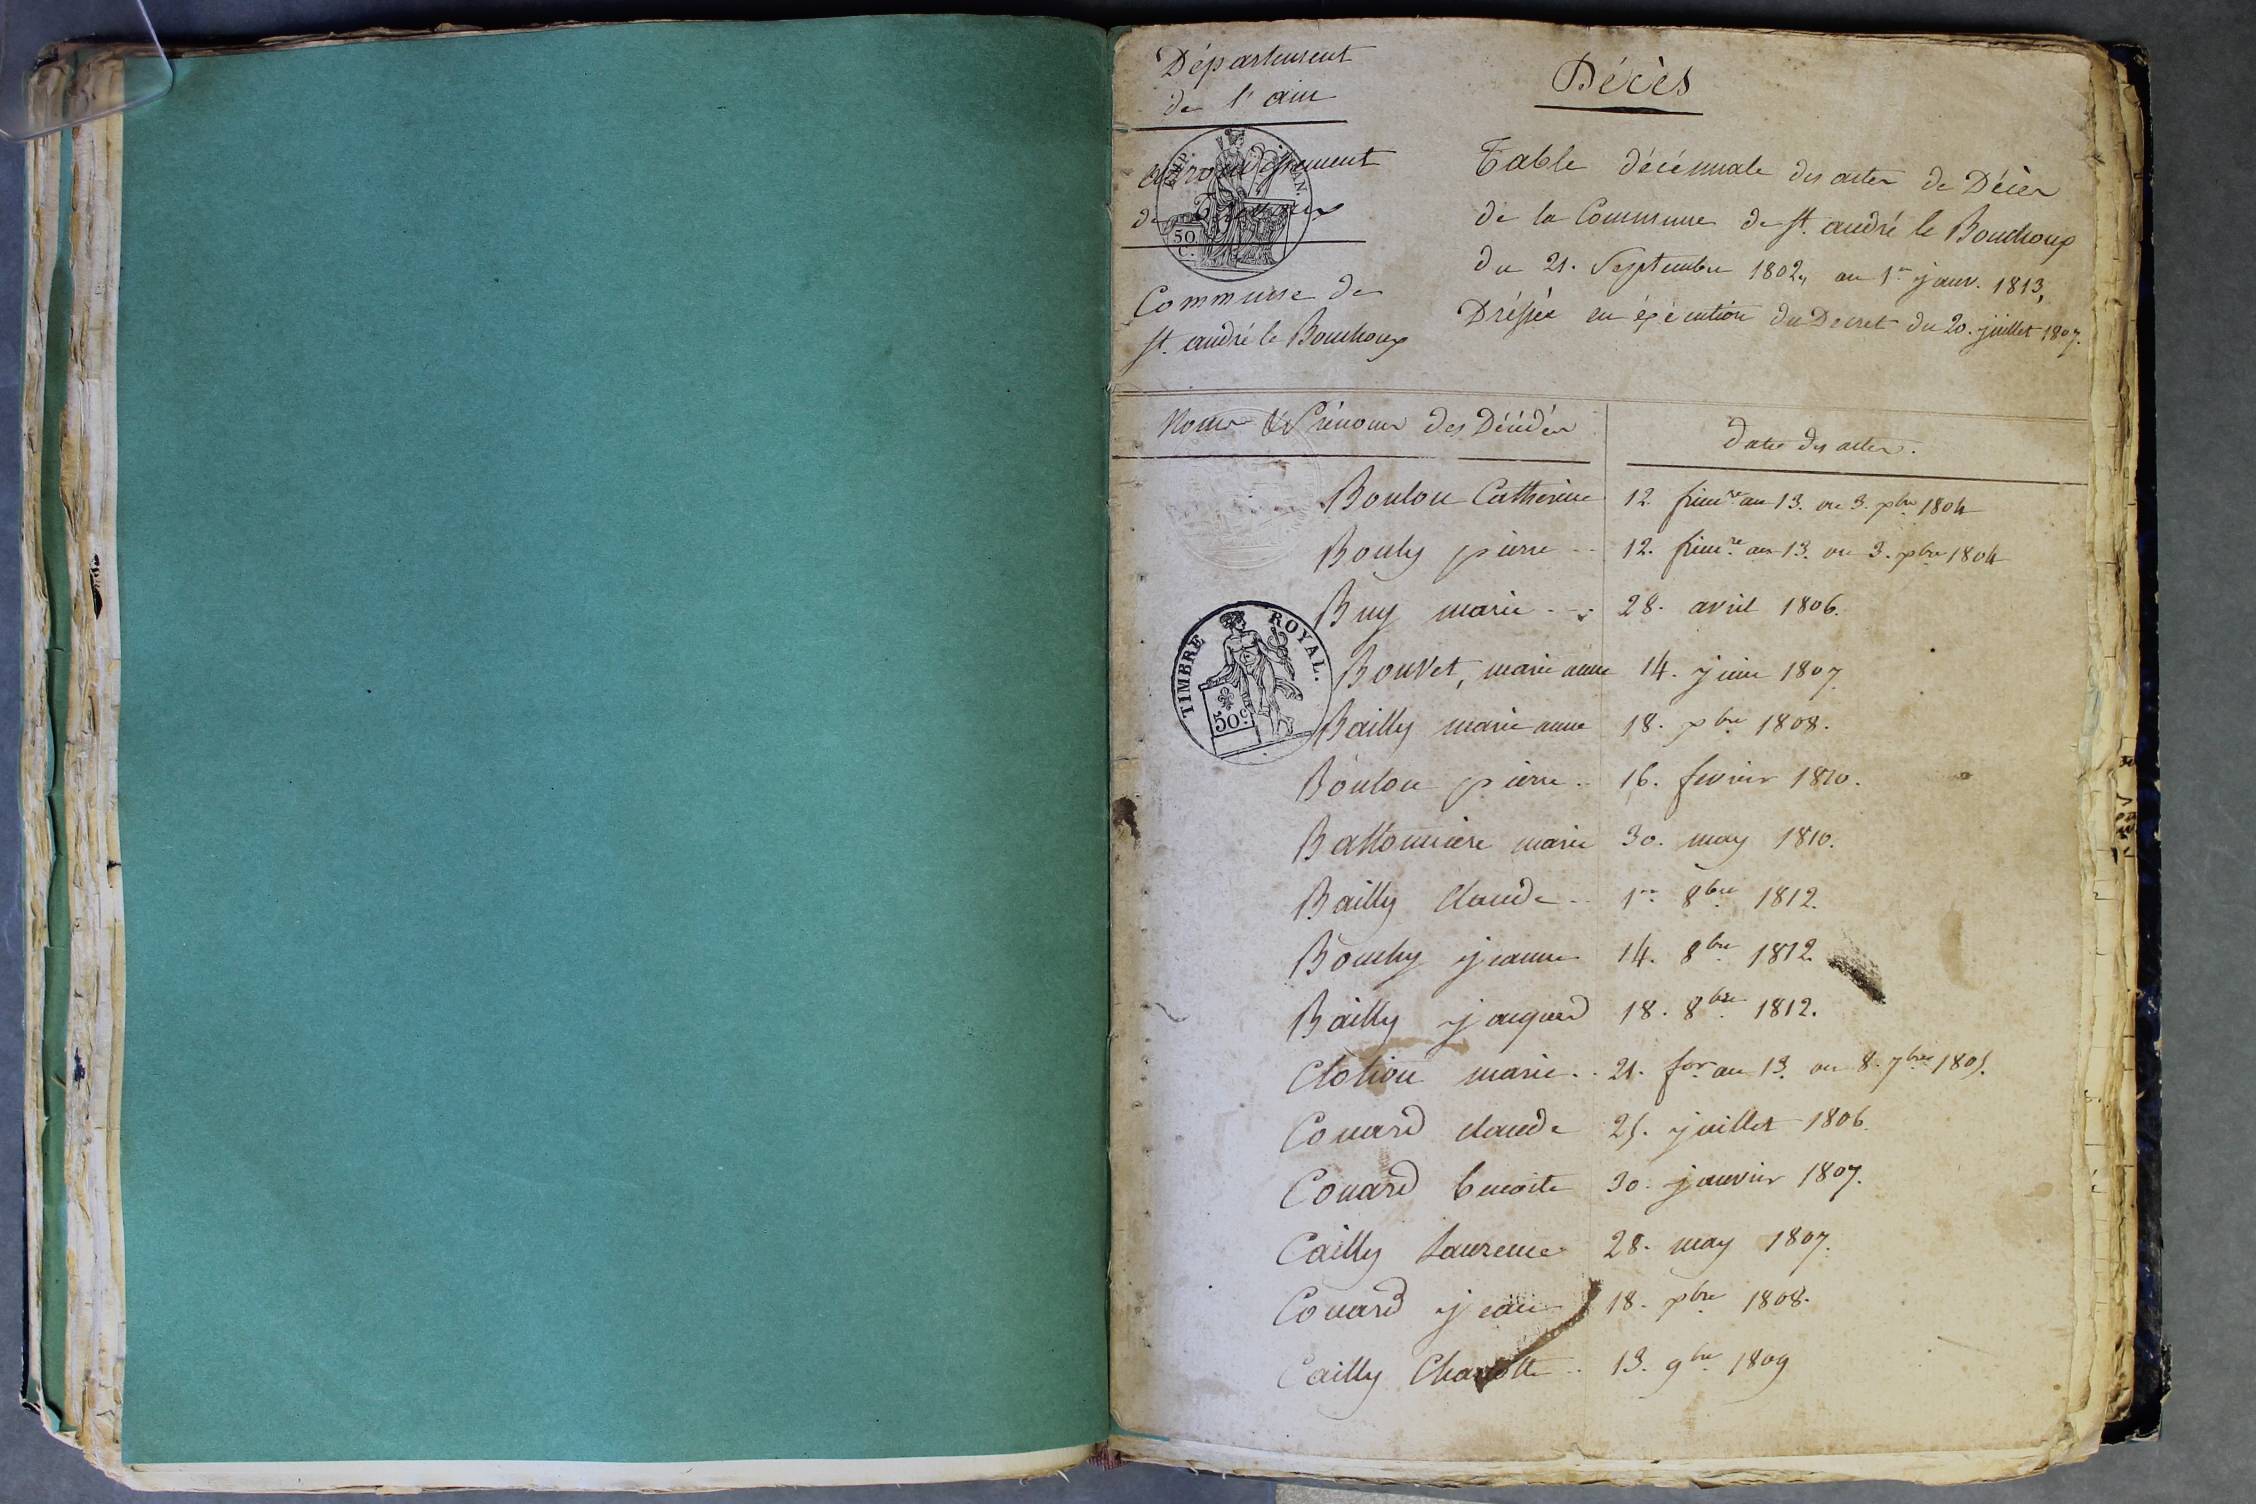 Département
de l'ain
EMP. FRAN.
50 C.
arrondissement
de Trévoux
Commune de
st. andré le Bouchoux
Décès
Table décennale des actes de Décès
de la Commune de st. andré le Bouchoux
du 21. Septembre 1802, au 1er janv. 1813,
Dréssée en éxécution du Decret du 20. juillet 1807.
Noms & Prénoms des Décédés
Date des actes.
TIMBRE ROYAL.
50c.
Boulon Catherine 12 frimre an 13. ou 3. xbre 1804
Bouly pierre -- 12. frimre an 13. ou 3. xbre 1804
Buy marie -- 28. avril 1806.
Bouvet, marie anne 14. juin 1807.
Bailly marie anne 18. xbre 1808.
Boulon pierre .. 16. fevrier 1810.
Battonniere marie 30. may 1810.
Bailly Claude .. 1er 8bre 1812.
Bouchy jeanne 14. 8bre 1812
Bailly jacques 18. 8bre 1812.
marie .. 21. for an 13. ou 8. 7bre 1805.
Couard claude 25. juillet 1806.
Couard benoite 30. janvier 1807.
Cailly Laurence 28. may 1807.
Couard jean 18. xbre 1808.
Cailly Charlotte .. 13. 9bre 1809